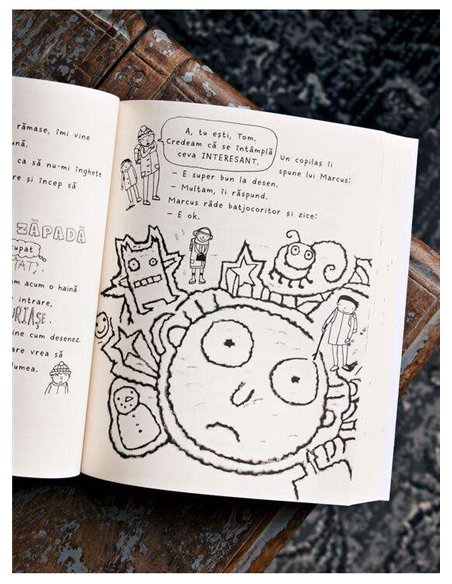 rămase, îmi vine
ună.
ca să nu-mi înghețe
re și încep să
ZĂPADĂ
upat
TAT,
m acum o haină
intrare,
RIAȘE.
ine cum desenez.
are vrea să
umea.
A, tu ești, Tom.
Credeam că se întâmplă
ceva INTERESANT.
Un copilaș îi
spune lui Marcus:
– E super bun la desen.
– Mulțam, îi răspund.
Marcus râde batjocoritor și zice:
– E ok.